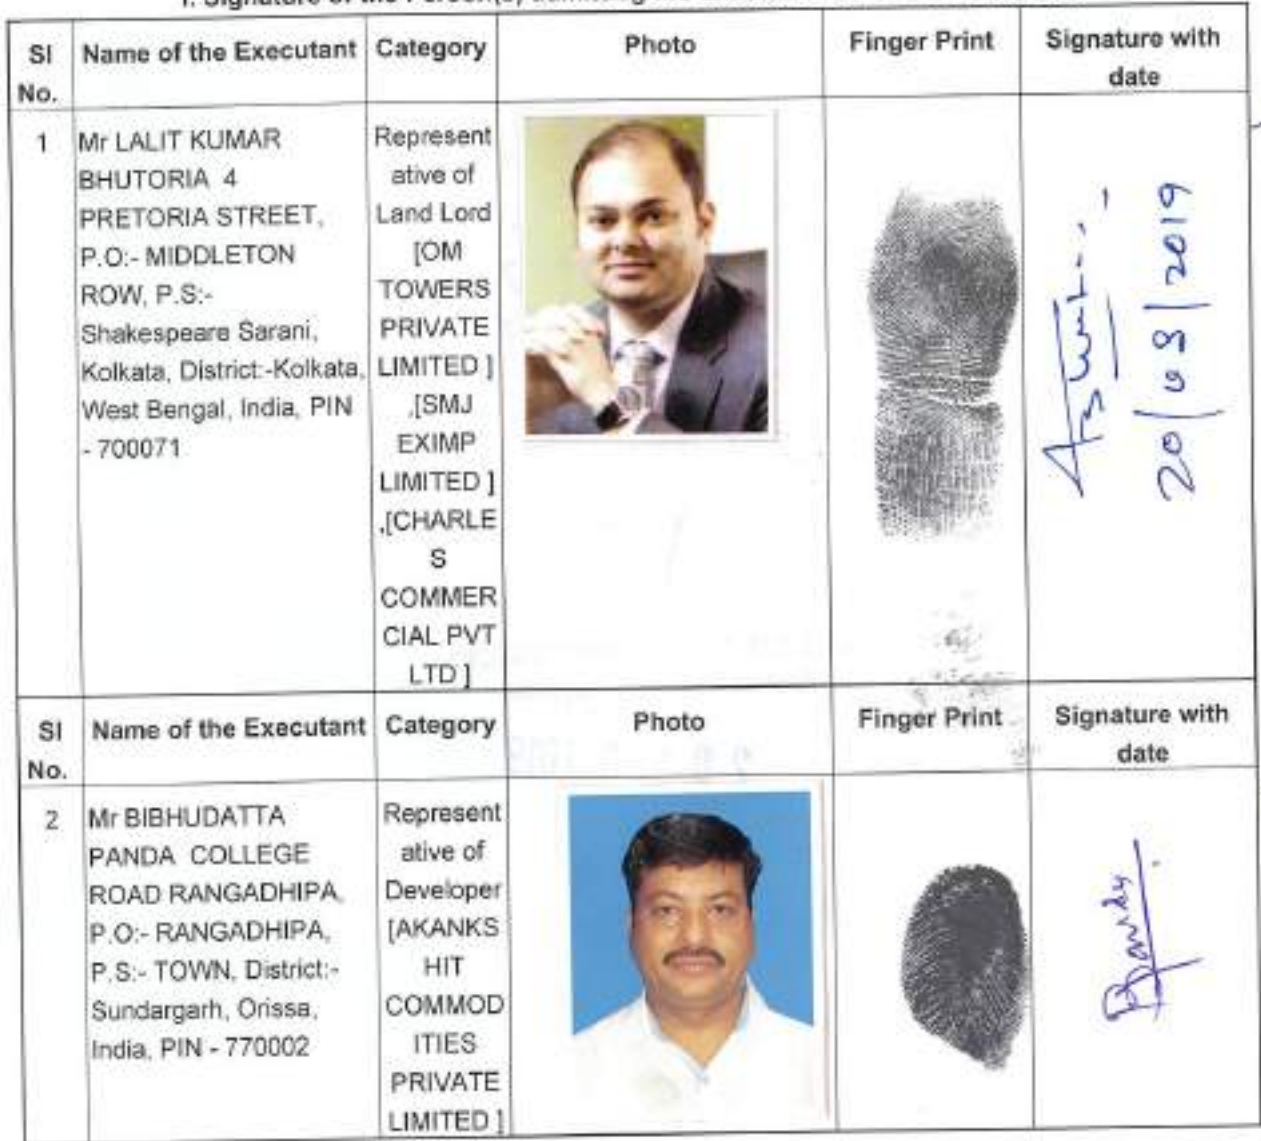 I. Signature of the Person(s) admitting
SI No. Name of the Executant Category Photo Finger Print Signature with date
1
Mr LALIT KUMAR
BHUTORIA 4
PRETORIA STREET,
P.O:- MIDDLETON
ROW, P.S:-
Shakespeare Sarani,
Kolkata, District:-Kolkata,
West Bengal, India, PIN
- 700071
Represent
ative of
Land Lord
[OM
TOWERS
PRIVATE
LIMITED ]
,[SMJ
EXIMP
LIMITED ]
,[CHARLE
S
COMMER
CIAL PVT
LTD ]
20/03/2019
SI No. Name of the Executant Category Photo Finger Print Signature with date
2
Mr BIBHUDATTA
PANDA COLLEGE
ROAD RANGADHIPA,
P.O:- RANGADHIPA,
P.S:- TOWN, District:-
Sundargarh, Orissa,
India, PIN - 770002
Represent
ative of
Developer
[AKANKS
HIT
COMMOD
ITIES
PRIVATE
LIMITED ]
BPanda